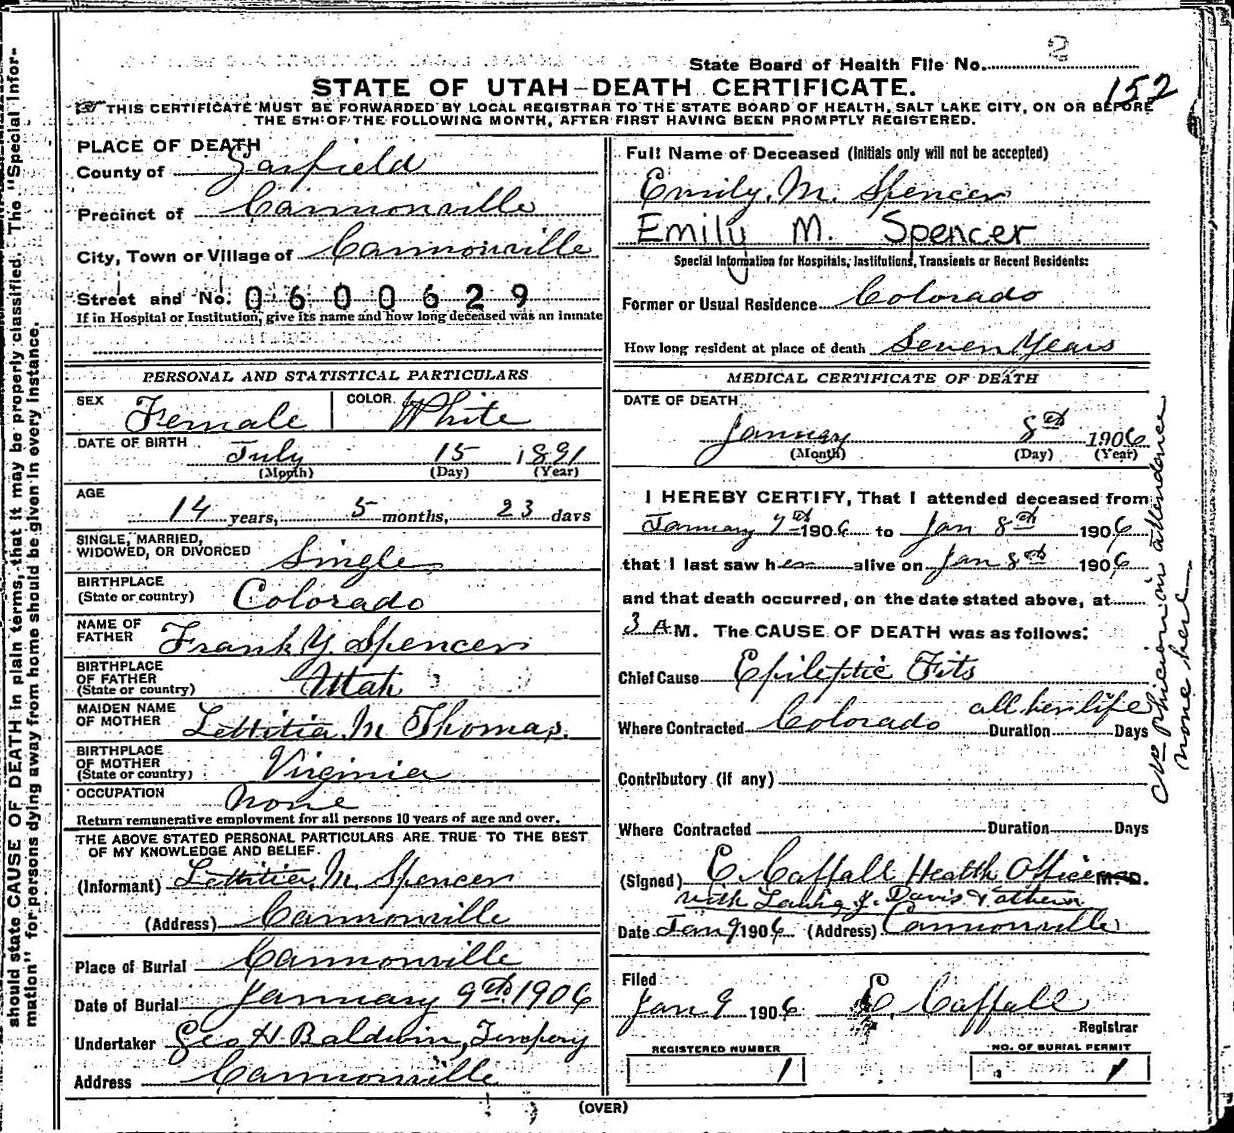 State Board of Health File No. 2
152
STATE OF UTAH—DEATH CERTIFICATE.
THIS CERTIFICATE MUST BE FORWARDED BY LOCAL REGISTRAR TO THE STATE BOARD OF HEALTH, SALT LAKE CITY, ON OR BEFORE
THE 5TH OF THE FOLLOWING MONTH, AFTER FIRST HAVING BEEN PROMPTLY REGISTERED.
should state CAUSE OF DEATH in plain terms, that it may be properly classified. The "Special Infor-
mation" for persons dying away from home should be given in every instance.
PLACE OF DEATH
County of Garfield
Precinct of Cannonville
City, Town or Village of Cannonville
Street and No. 0600629
If in Hospital or Institution, give its name and how long deceased was an inmate
PERSONAL AND STATISTICAL PARTICULARS
SEX Female COLOR White
DATE OF BIRTH July 15 1891
(Month) (Day) (Year)
AGE
14 years, 5 months, 23 days
SINGLE, MARRIED,
WIDOWED, OR DIVORCED Single
BIRTHPLACE
(State or country) Colorado
NAME OF
FATHER Frank Y Spencer
BIRTHPLACE
OF FATHER
(State or country) Utah
MAIDEN NAME
OF MOTHER Lettitia M Thomas.
BIRTHPLACE
OF MOTHER
(State or country) Virginia
OCCUPATION None
Return remunerative employment for all persons 10 years of age and over.
THE ABOVE STATED PERSONAL PARTICULARS ARE TRUE TO THE BEST
OF MY KNOWLEDGE AND BELIEF.
(Informant) Lettitia M. Spencer
(Address) Cannonville
Place of Burial Cannonville
Date of Burial January 9th 1906
Undertaker Geo H. Baldwin,
Address Cannonville
Full Name of Deceased (Initials only will not be accepted)
Emily. M. Spencer
Emily M. Spencer
Special Information for Hospitals, Institutions, Transients or Recent Residents:
Former or Usual Residence Colorado
How long resident at place of death Seven Years
MEDICAL CERTIFICATE OF DEATH
DATE OF DEATH
January 8th 1906
(Month) (Day) (Year)
I HEREBY CERTIFY, That I attended deceased from
January 7th 1906 to Jan 8th 1906
that I last saw her alive on Jan 8th 1906
and that death occurred, on the date stated above, at
3 A M. The CAUSE OF DEATH was as follows:
Chief Cause Epileptic Fits
Where Contracted Colorado Duration all her life Days
Contributory (if any)
Where Contracted Duration Days
(Signed) C Caffall Health Officer M. D.
with J. Davis & others
Date Jan 9 1906 (Address) Cannonville
Filed
Jan 9 1906 C Caffall
Registrar
REGISTERED NUMBER
1
NO. OF BURIAL PERMIT
1
No Phicician in attendence
none here
(OVER)